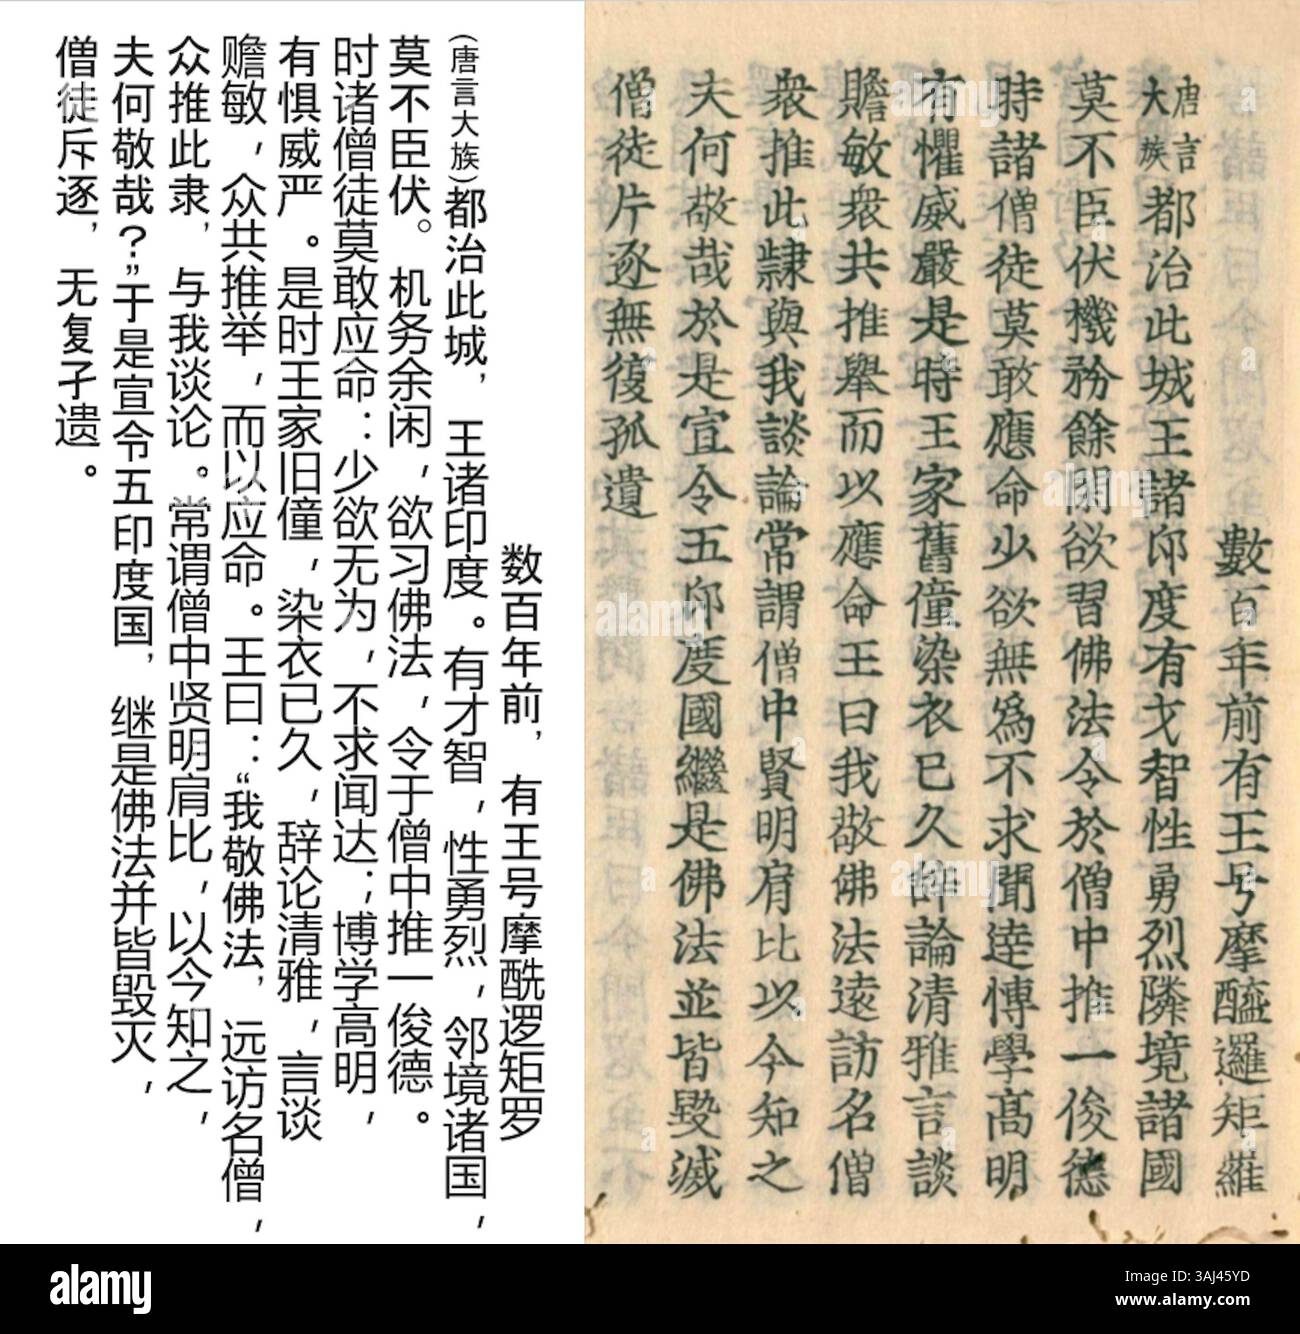 數百年前有王号摩醯邏矩羅
唐言大族都治此城王諸印度有才智性勇烈隣境諸國
莫不臣伏機務餘閑欲習佛法令於僧中推一俊德
時諸僧徒莫敢應命少欲無爲不求聞達博學高明
有懼威嚴是時王家舊僮染衣已久辝論清雅言談
贍敏衆共推舉而以應命王曰我敬佛法遠訪名僧
衆推此隷與我談論常謂僧中賢明肩比以今知之
夫何敬哉於是宣令五印度國繼是佛法並皆毀滅
僧徒片逐無復孤遺
数百年前，有王号摩酰逻矩罗
(唐言大族)都治此城，王诸印度。有才智，性勇烈，邻境诸国，
莫不臣伏。机务余闲，欲习佛法，令于僧中推一俊德。
时诸僧徒莫敢应命：少欲无为，不求闻达；博学高明，
有惧威严。是时王家旧僮，染衣已久，辞论清雅，言谈
赡敏，众共推举，而以应命。王曰：“我敬佛法，远访名僧，
众推此隶，与我谈论。常谓僧中贤明肩比，以今知之，
夫何敬哉？”于是宣令五印度国，继是佛法并皆毁灭，
僧徒斥逐，无复孑遗。
alamy
Image ID: 3AJ45YD
www.alamy.com